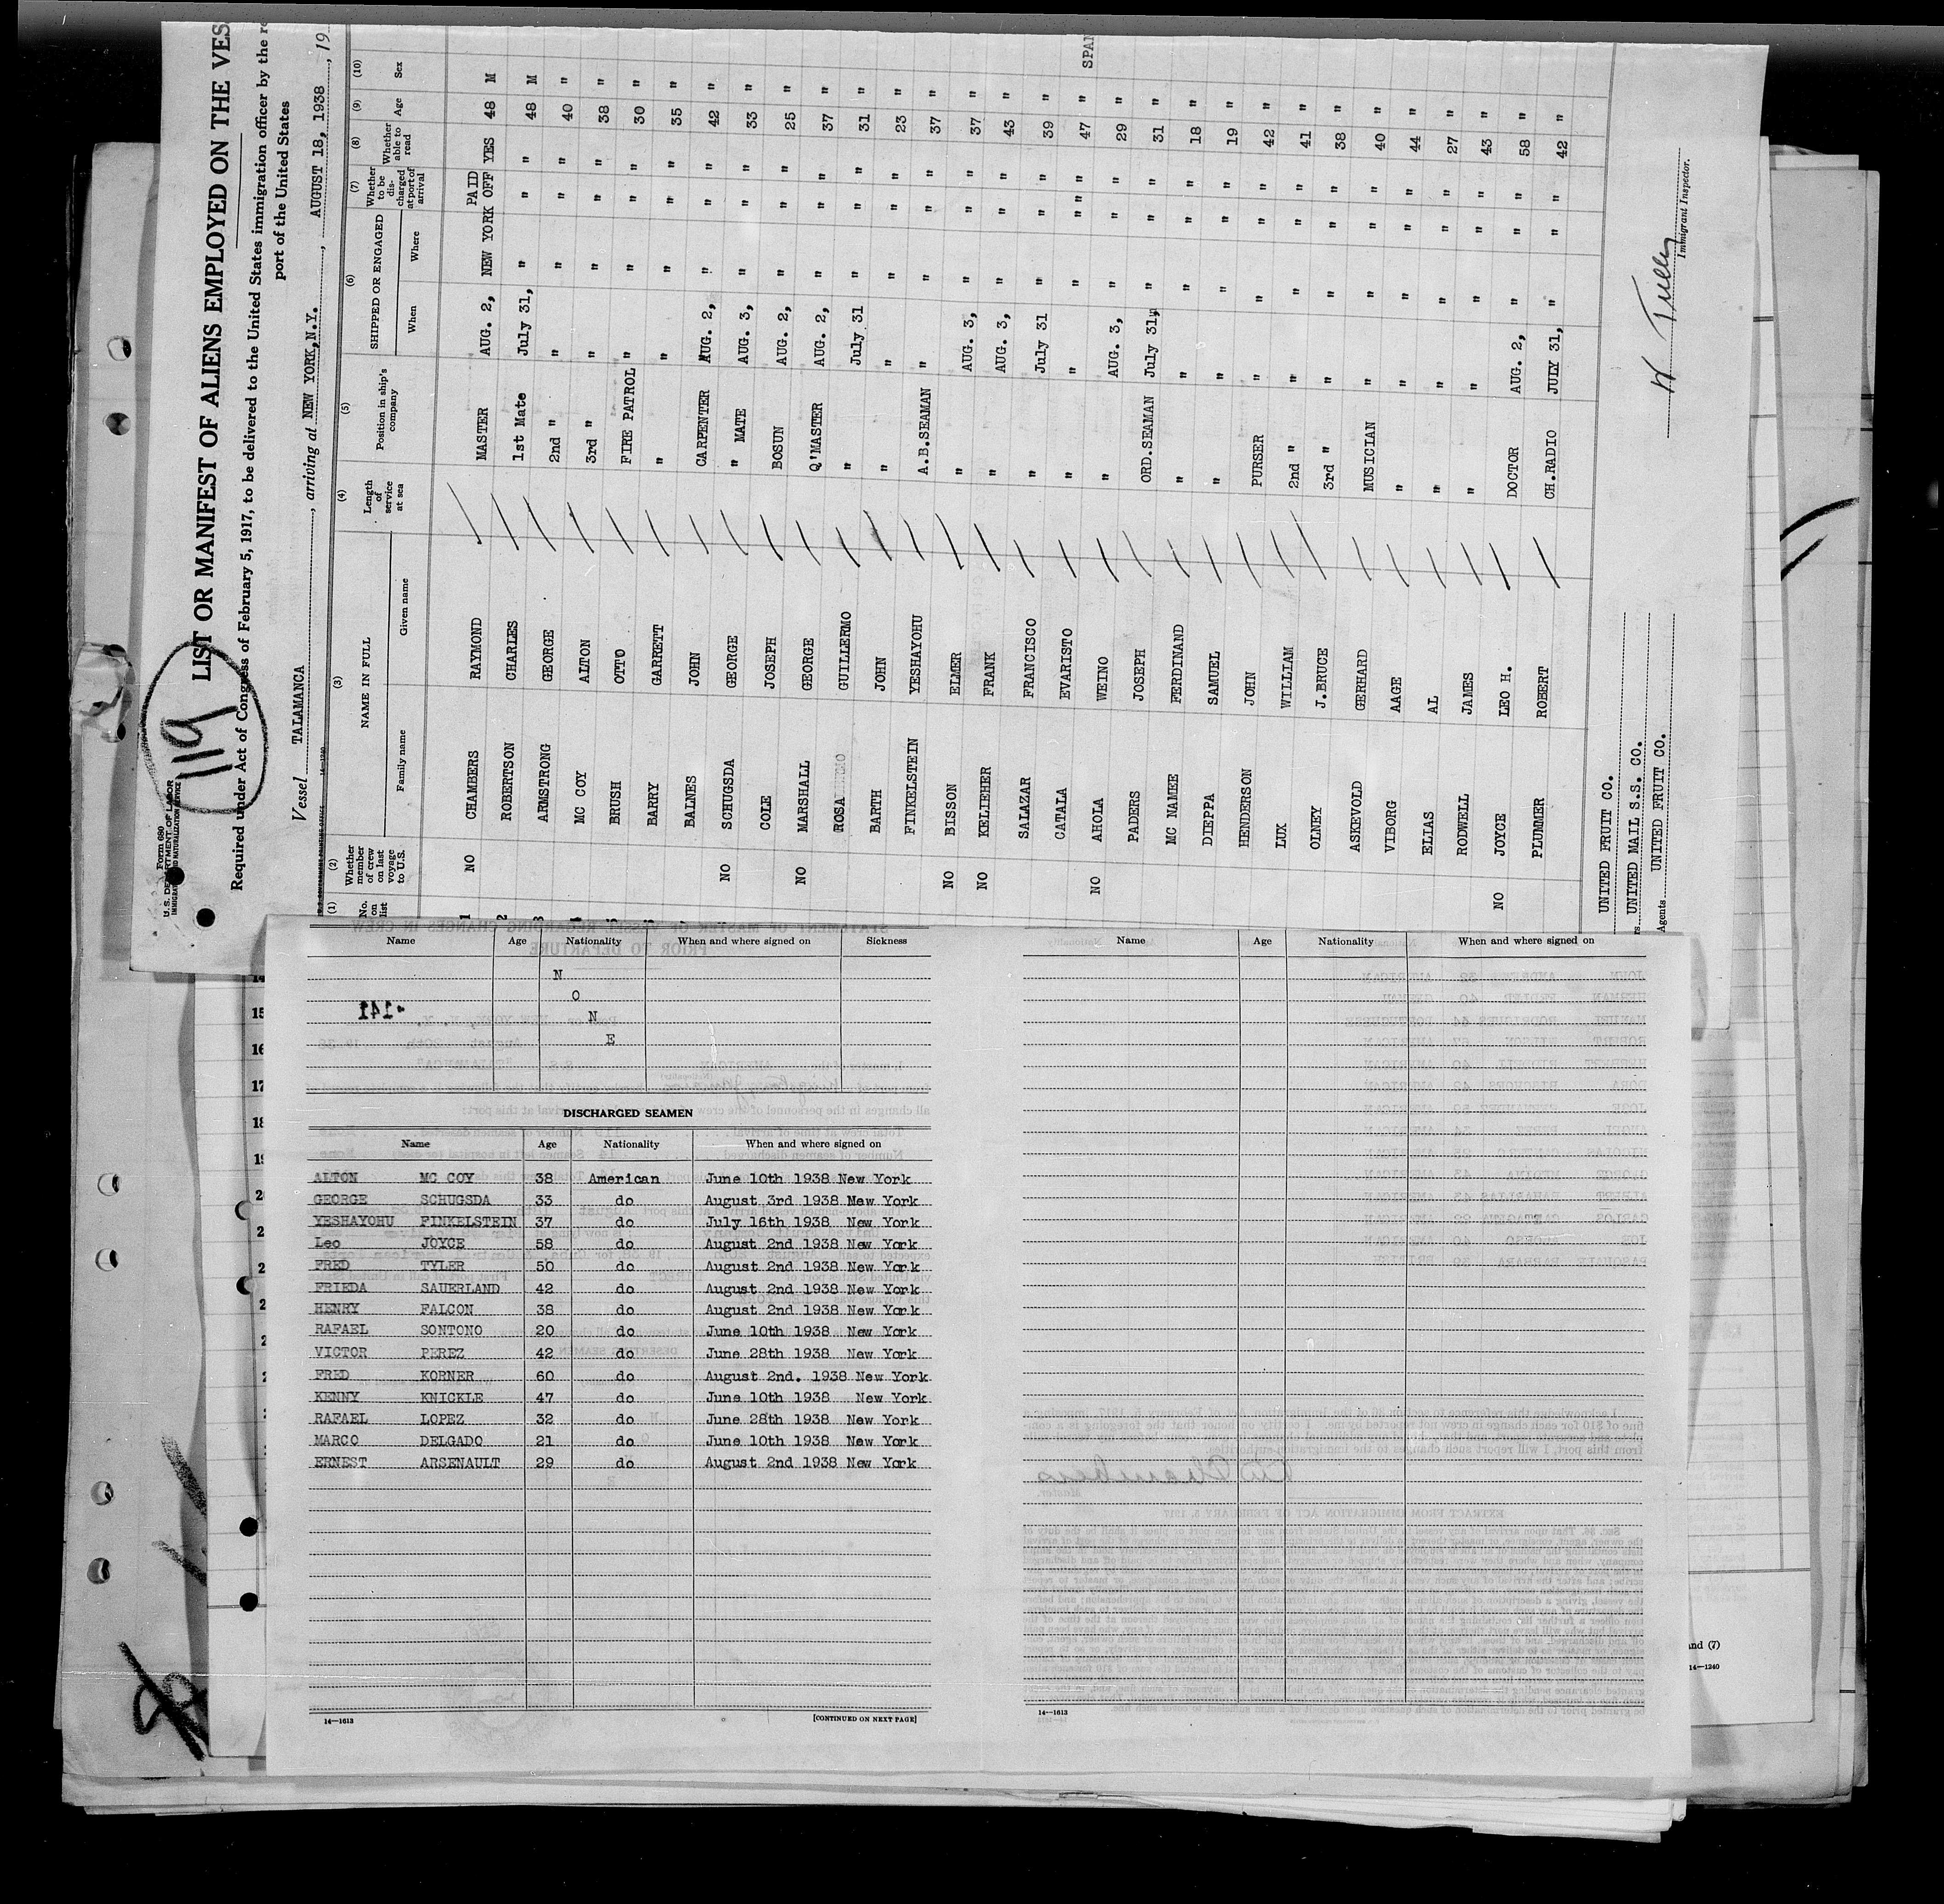 119
Form 680
U. S. DEPARTMENT OF LABOR
IMMIGRATION AND NATURALIZATION SERVICE
LIST OR MANIFEST OF ALIENS EMPLOYED ON THE VES
Required under Act of Congress of February 5, 1917, to be delivered to the United States immigration officer by the
port of the United States
Vessel TALAMANCA, arriving at NEW YORK,N.Y., AUGUST 18, 1938, 19
(1) (2) (3) (4) (5) (6) (7) (8) (9) (10)
No. on list Whether member of crew on last voyage to U.S. NAME IN FULL Length of service at sea Position in ship's company SHIPPED OR ENGAGED Whether to be discharged at port of arrival Whether able to read Age Sex
Family name Given name When Where
1 NO CHAMBERS RAYMOND MASTER AUG. 2, NEW YORK PAID OFF YES 48 M
2 ROBERTSON CHARLES 1st Mate July 31, " " " 48 M
3 ARMSTRONG GEORGE 2nd " " " " " 40 "
4 MC COY ALTON 3rd " " " " " 38 "
BRUSH OTTO FIRE PATROL " " " " 30 "
BARRY GARRETT " " " " " 35 "
BALNES JOHN CARPENTER AUG. 2, " " " 42 "
NO SCHUGSDA GEORGE " MATE AUG. 3, " " " 33 "
COLE JOSEPH BOSUN AUG. 2, " " " 25 "
NO MARSHALL GEORGE Q'MASTER AUG. 2, " " " 37 "
ROSA GUILLERMO " July 31 " " " 31 "
BARTH JOHN " " " " " 23 "
FINKELSTEIN YESHAYOHU A.B.SEAMAN " " " " 37 "
NO BISSON ELMER " AUG. 3, " " " 37 "
NO KELIEHER FRANK " AUG. 3, " " " 43 "
SALAZAR FRANCISCO " July 31 " " " 39 "
CATALA EVARISTO " " " " " 47 " SPAN
NO AHOLA WEINO " AUG. 3, " " " 29 "
PADERS JOSEPH ORD.SEAMAN July 31, " " " 31 "
MC NAMEE FERDINAND " " " " " 18 "
DIEPPA SAMUEL " " " " " 19 "
HENDERSON JOHN PURSER " " " " 42 "
LUX WILLIAM 2nd " " " " " 41 "
OLNEY J.BRUCE 3rd " " " " " 38 "
ASKEVOLD GERHARD MUSICIAN " " " " 40 "
VIBORG AAGE " " " " " 44 "
ELIAS AL " " " " " 27 "
RODWELL JAMES " " " " " 43 "
NO JOYCE LEO H. DOCTOR AUG. 2, " " " 58 "
PLUMMER ROBERT CH.RADIO JULY 31, " " " 42 "
UNITED FRUIT CO.
UNITED MAIL S.S. CO.
Agents UNITED FRUIT CO.
Immigrant Inspector.
Name Age Nationality When and where signed on Sickness
N
O
N
E
141
DISCHARGED SEAMEN
Name Age Nationality When and where signed on
ALTON MC COY 38 American June 10th 1938 New York
GEORGE SCHUGSDA 33 do August 3rd 1938 New York
YESHAYOHU FINKELSTEIN 37 do July 16th 1938 New York
Leo JOYCE 58 do August 2nd 1938 New York
FRED TYLER 50 do August 2nd 1938 New York
FRIEDA SAUERLAND 42 do August 2nd 1938 New York
HENRY FALCON 38 do August 2nd 1938 New York
RAFAEL SONTONO 20 do June 10th 1938 New York
VICTOR PEREZ 42 do June 28th 1938 New York
FRED KORNER 60 do August 2nd. 1938 New York
KENNY KNICKLE 47 do June 10th 1938 New York
RAFAEL LOPEZ 32 do June 28th 1938 New York
MARCO DELGADO 21 do June 10th 1938 New York
ERNEST ARSENAULT 29 do August 2nd 1938 New York
14—1613 [CONTINUED ON NEXT PAGE]
Name Age Nationality When and where signed on
14—1613
15
16
17
and (7)
14—1240